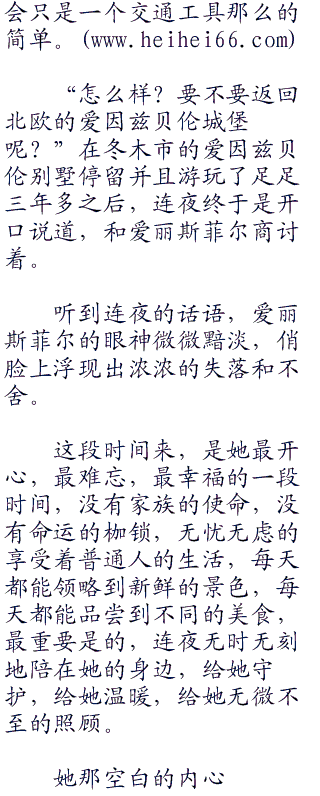 会只是一个交通工具那么的
简单。(www.heihei66.com)
“怎么样？要不要返回
北欧的爱因兹贝伦城堡
呢？”在冬木市的爱因兹贝
伦别墅停留并且游玩了足足
三年多之后，连夜终于是开
口说道，和爱丽斯菲尔商讨
着。
听到连夜的话语，爱丽
斯菲尔的眼神微微黯淡，俏
脸上浮现出浓浓的失落和不
舍。
这段时间来，是她最开
心，最难忘，最幸福的一段
时间，没有家族的使命，没
有命运的枷锁，无忧无虑的
享受着普通人的生活，每天
都能领略到新鲜的景色，每
天都能品尝到不同的美食，
最重要是的，连夜无时无刻
地陪在她的身边，给她守
护，给她温暖，给她无微不
至的照顾。
她那空白的内心